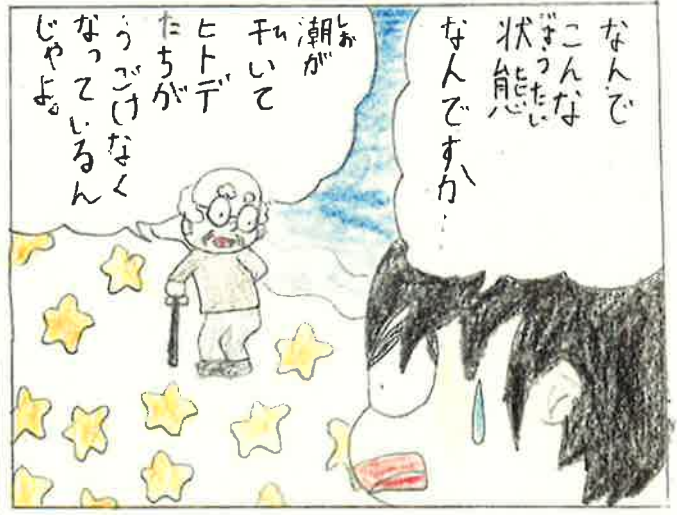 なんで
こんな
状態
じょうたい
なんですか…
潮が
しお
干いて
ひ
ヒトデ
たちが
うごけなく
なっているん
じゃよ。